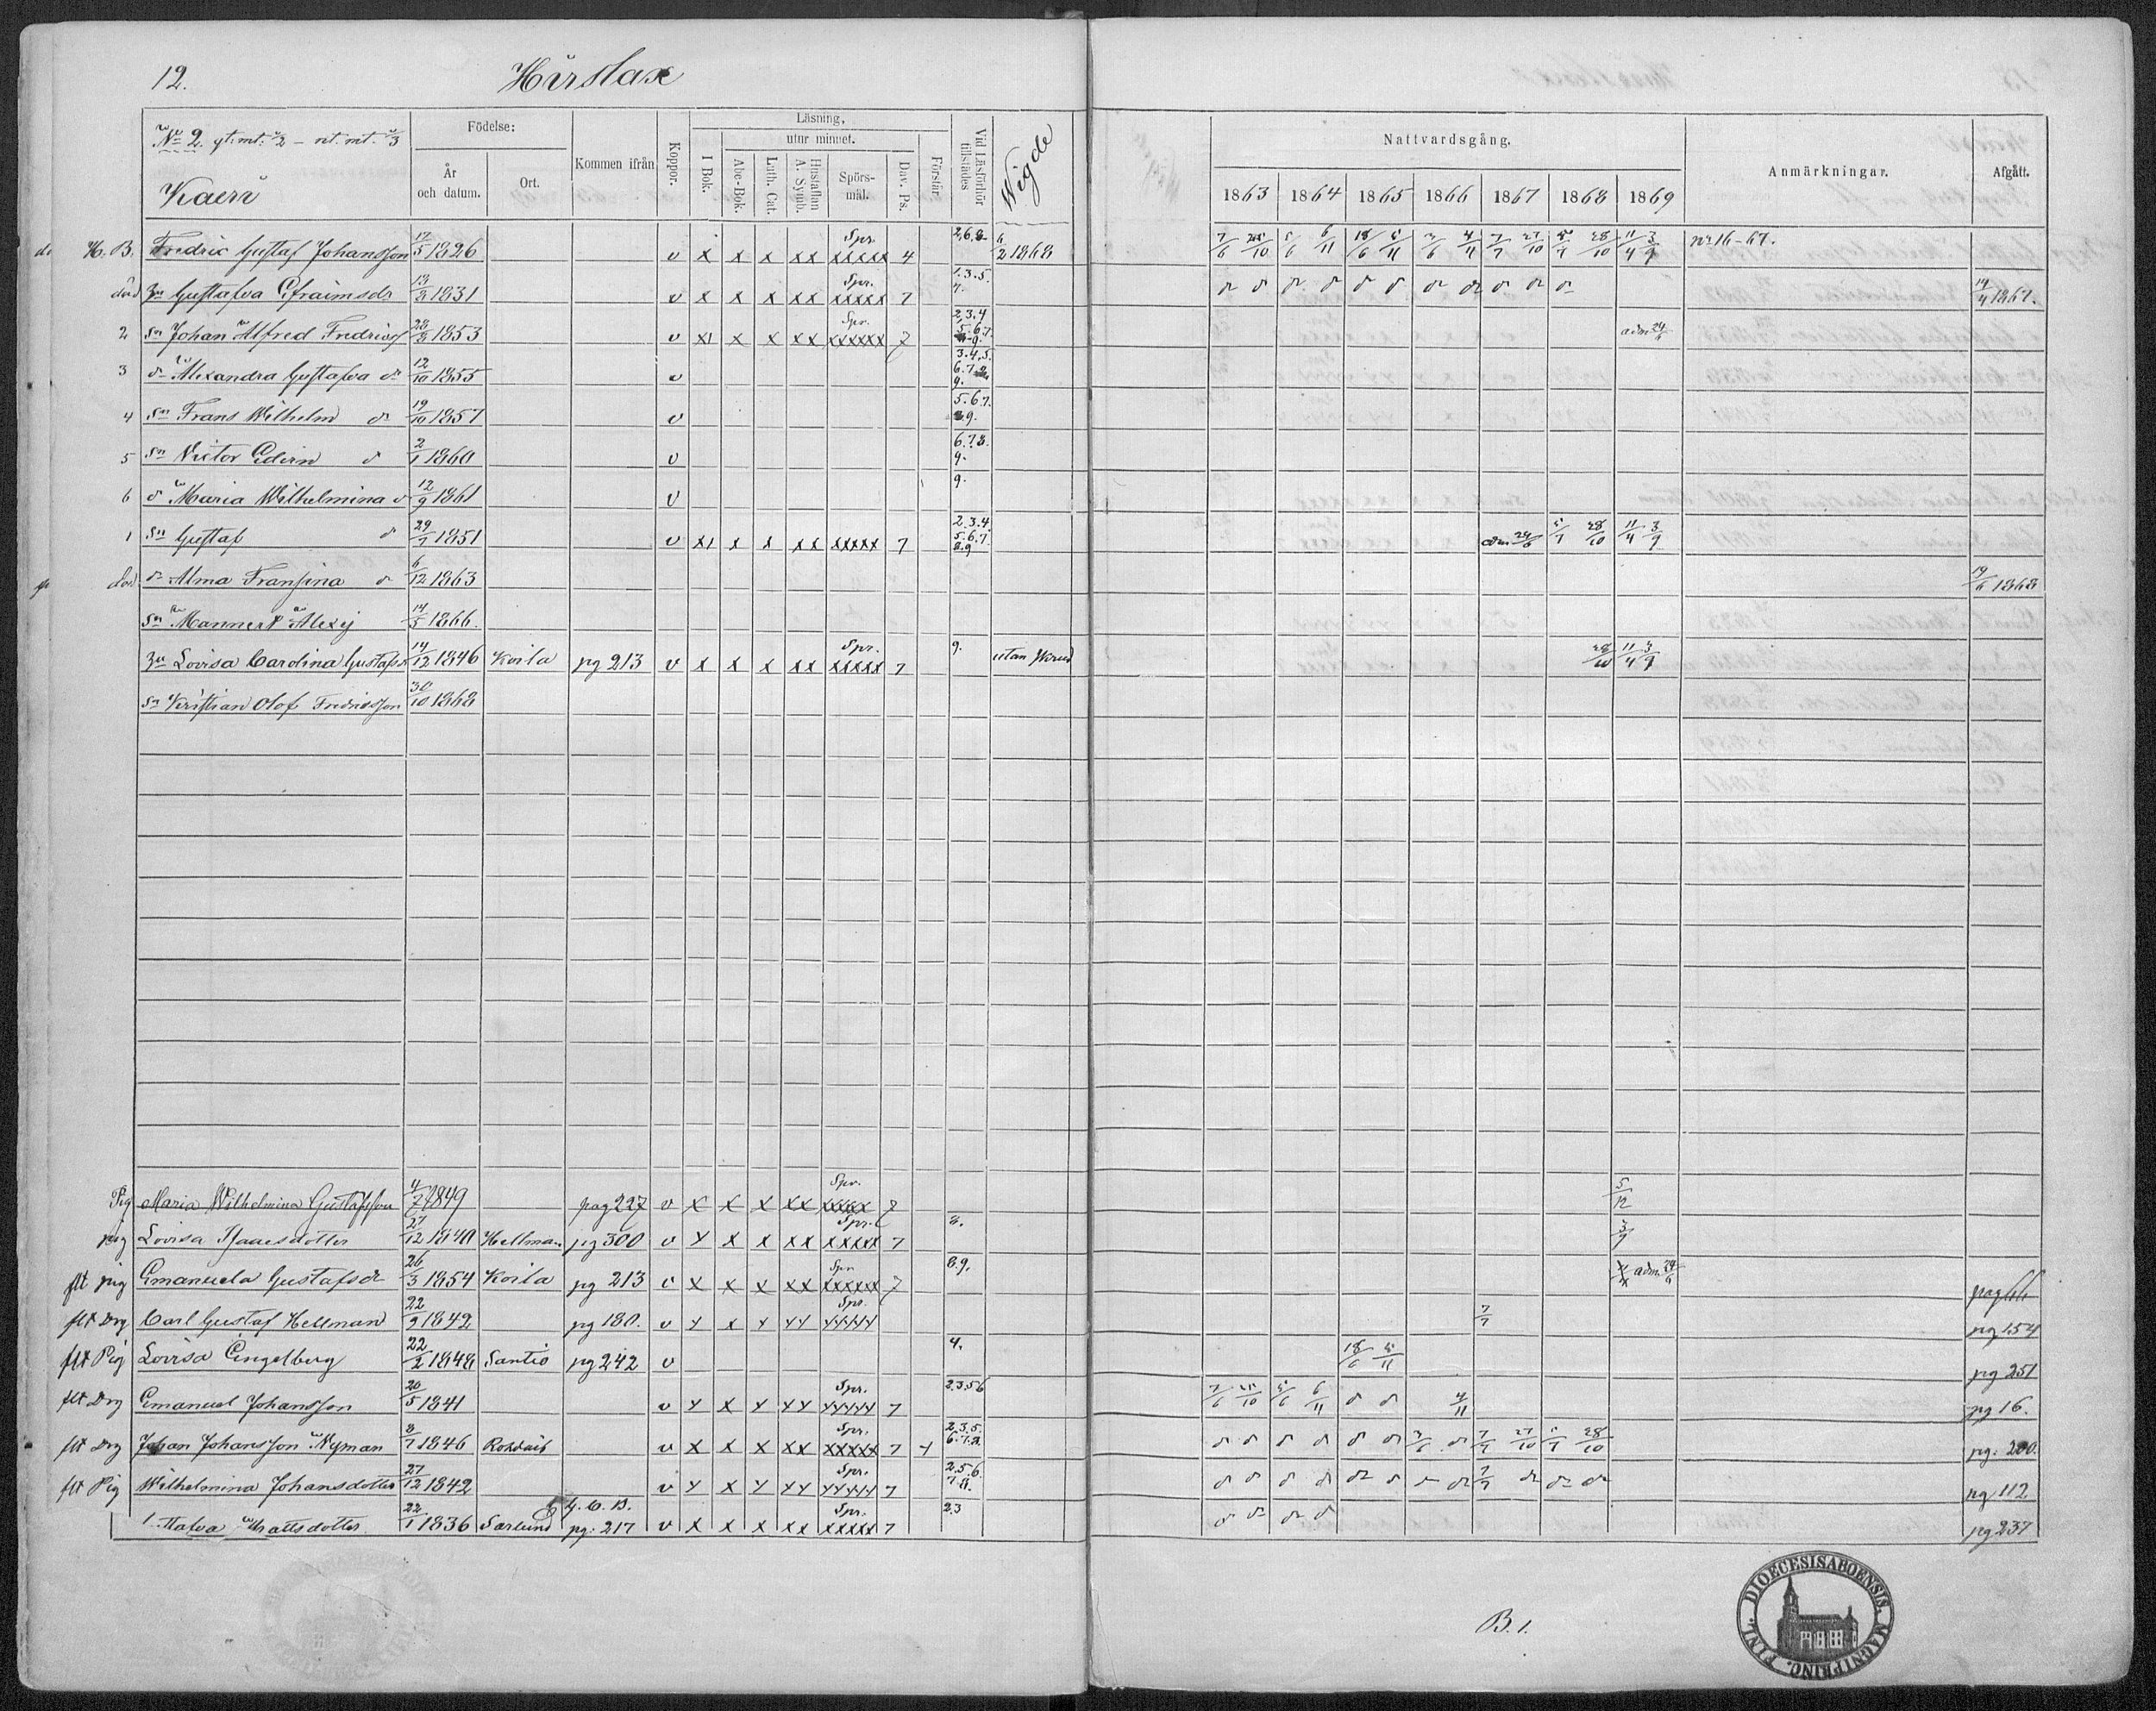 12. Hirslax
No 2. Födelse: Kommen ifrån Koppor. Läsning, Vid Läsförhör tillstädes Wigde Nattvardsgång. Anmärkningar. Afgått.
År och datum. Ort. I Bok. utur minnet. Förstår.
Abc-Bok. Luth. Cat. Hustaflan A. Symb. Spörsmål. Dav. Ps.
Kaerö 1863 1864 1865 1866 1867 1868 1869
H. B. Fredric Gustaf Johansson 17/5 1826 v x x x xx Spr. xxxxx 4 2,6.8 6/2 1868 nr 16-67.
död 2u Gustafva Efraimsdr 13/8 1831 v x x x xx Spr. xxxxx 7 1.3.5. 7. 14/4 1867.
2 Sn Johan Alfred Fredricss 28/8 1853 v x x x xx Spr. xxxxx 7 2,3.4 5.6.7. 9. adm 24/6
3 dr Alexandra Gustafva dr 12/10 1855 v 3.4.5. 6.7.8 9.
4 Sn Frans Wilhelm dr 19/10 1857 v 5.6.7. 8.9.
5 Sn Victor Edvin d 2/1 1860 v 6.7.8. 9.
6 d Maria Wilhelmina d 12/9 1861 v 9.
1 Sn Gustaf d 29/7 1851 v x x x xx xxxxx 7 2.3.4. 5.6.7 8.9 adm 24/6 5/7 28/10 11/4 3/9
död dr Alma Fransina dr 6/12 1863 19/6 1868
Sn Mannert Alexij 14/5 1866.
2u Lovisa Carolina Gustafsdr 14/12 1846 Korla pg 213 v x x x xx Spr. xxxxx 7 9. utan 28/10 11/4 3/9
Sn Kristian Olof Fredricsson 30/10 1868
Pig Maria Wilhelmina Gustafsson 4/7 1849 pag 227 v x x x xx Spr. xxxxx 7 5/12
pig Lovisa Isaacsdotter 27/12 1840 Hellman pg 300 v x x x xx Spr. xxxxx 7 8. 3/9
flt pig Emanuela Gustafsdr 26/3 1854 Korla pg 213 v x x x xx Spr xxxxx 7 8.9. adm 24/6 pag 66
flt Drg Carl Gustaf Hellman 22/9 1842 pg 180. v x x x xx Spr. xxxxx 7/7 pg 154
flt Pig Lovisa Engelberg 22/2 1848 Santio pg 242 v 4. 18/6 5/11 pg 251
flt Drg Emanuel Johansson 20/5 1841 v x x x xx Spr. xxxxx 7 2.3.56 7/6 25/10 5/6 6/11 4/11 pg 16.
flt Drg Johan Johansson Nyman 8/7 1846 v x x x xx Spr. xxxxx 7 x 2,3,5. 6.7.8. 27/10 28/10 pg. 200.
flt Pig Wilhelmina Johansdotter 27/12 1842 v x x x xx Spr. xxxxx 7 2,5.6. 7.8. 7/7 pg 112
Mattsdotter 22/1 1836 Sarlund pg. 217 v x x x xx Spr. xxxxx 7 2.3 pg 237
B. 1.
DIOECESIS ABOENSIS. MAGNI PRINC. FINL.